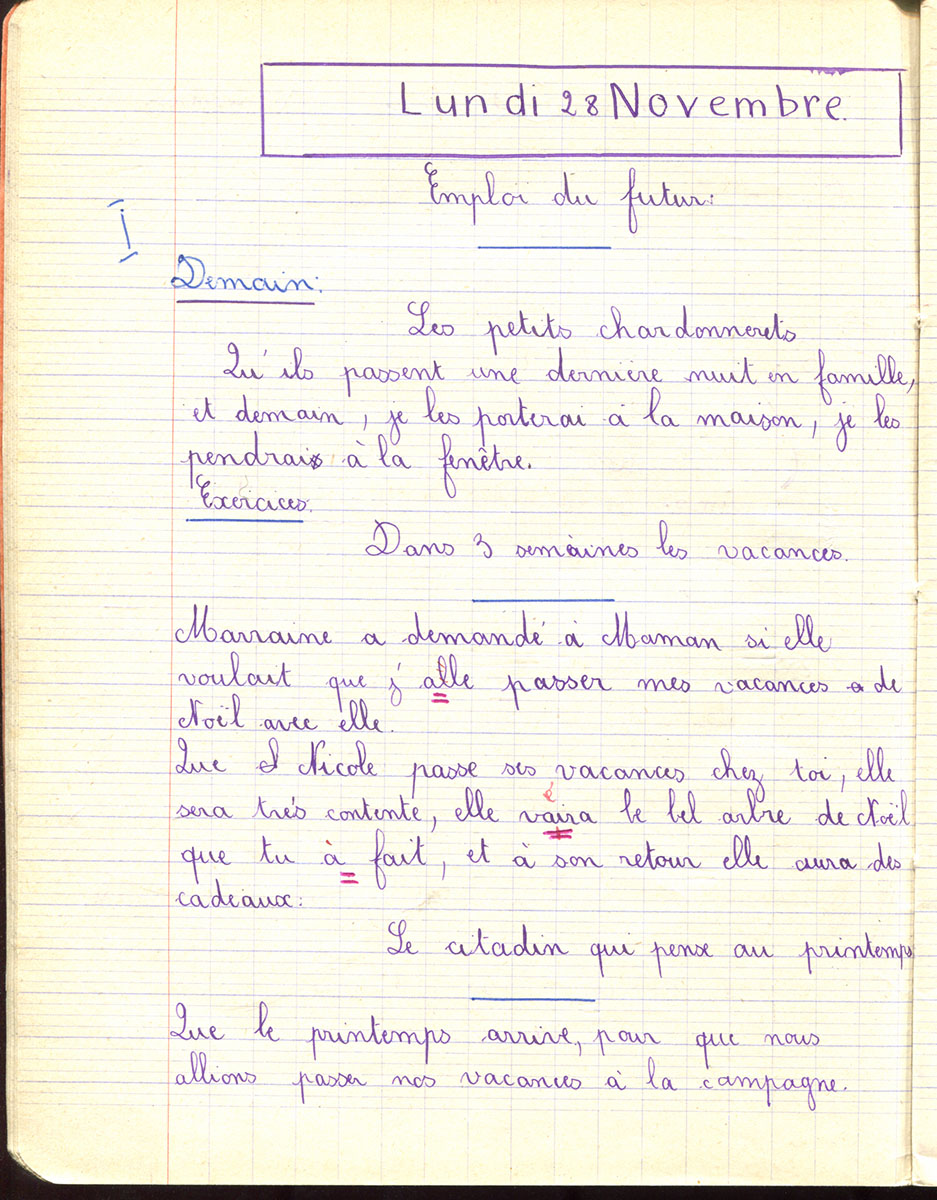 Lundi 28 Novembre.
Emploi du futur:
I
Demain:
Les petits chardonnerets
Qu'ils passent une dernière nuit en famille,
et demain, je les porterai à la maison, je les
pendrais à la fenêtre.
Exercices.
Dans 3 semaines les vacances.
Marraine a demandé à Maman si elle
voulait que j'alle passer mes vacances de
Noël avec elle.
Que Nicole passe ses vacances chez toi, elle
sera très contente, elle vaira le bel arbre de Noël
que tu à fait, et à son retour elle aura des
cadeaux.
Le citadin qui pense au printemps
Que le printemps arrive, pour que nous
allions passer nos vacances à la campagne.